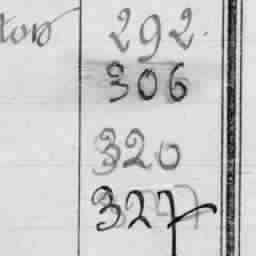 292.
306
320
327